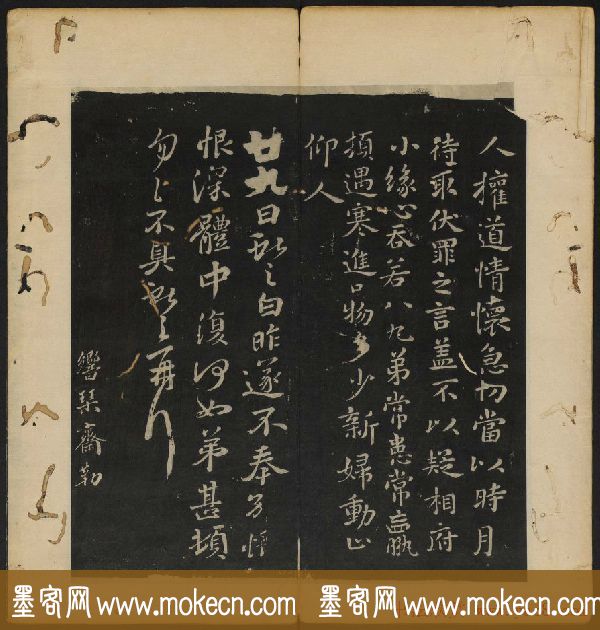 人道情懷急切當以時月
待取伏罪之言盖不以疑相府
小緣心吞若八九弟常患常羸
頓遇寒進口物多少新婦動止
仰人
廿九日獻之白昨遂不奉別悵
恨深體中復何如弟甚頓
勿々不具獻之再拜
響琴齋勒
墨客网 www.mokecn.com 墨客网 www.mokecn.com